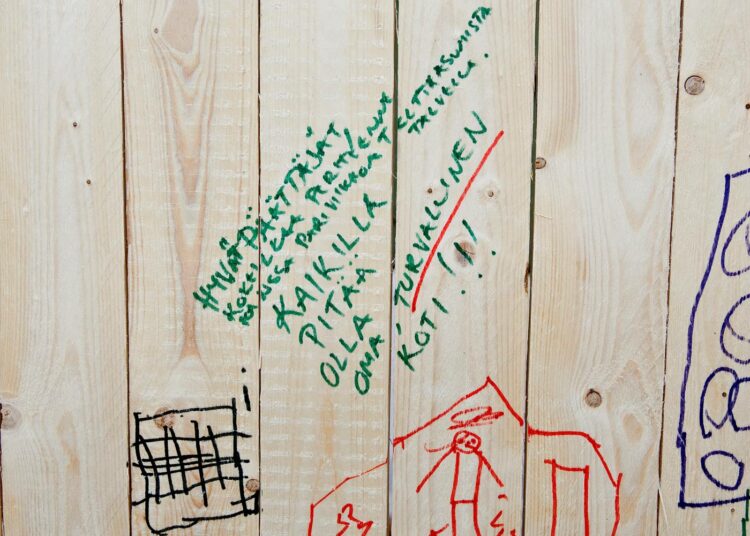 HYVÄT PÄÄTTÄJÄT
KOKEILKAA PERHEENNE
KANSSA PARI VIIKKOA TELTTAASUMISTA
TALVELLA.
KAIKILLA
PITÄÄ
OLLA
OMA, TURVALLINEN
KOTI!!!